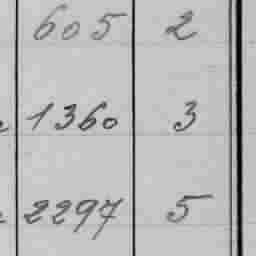 605 2
1360 3
2297 5